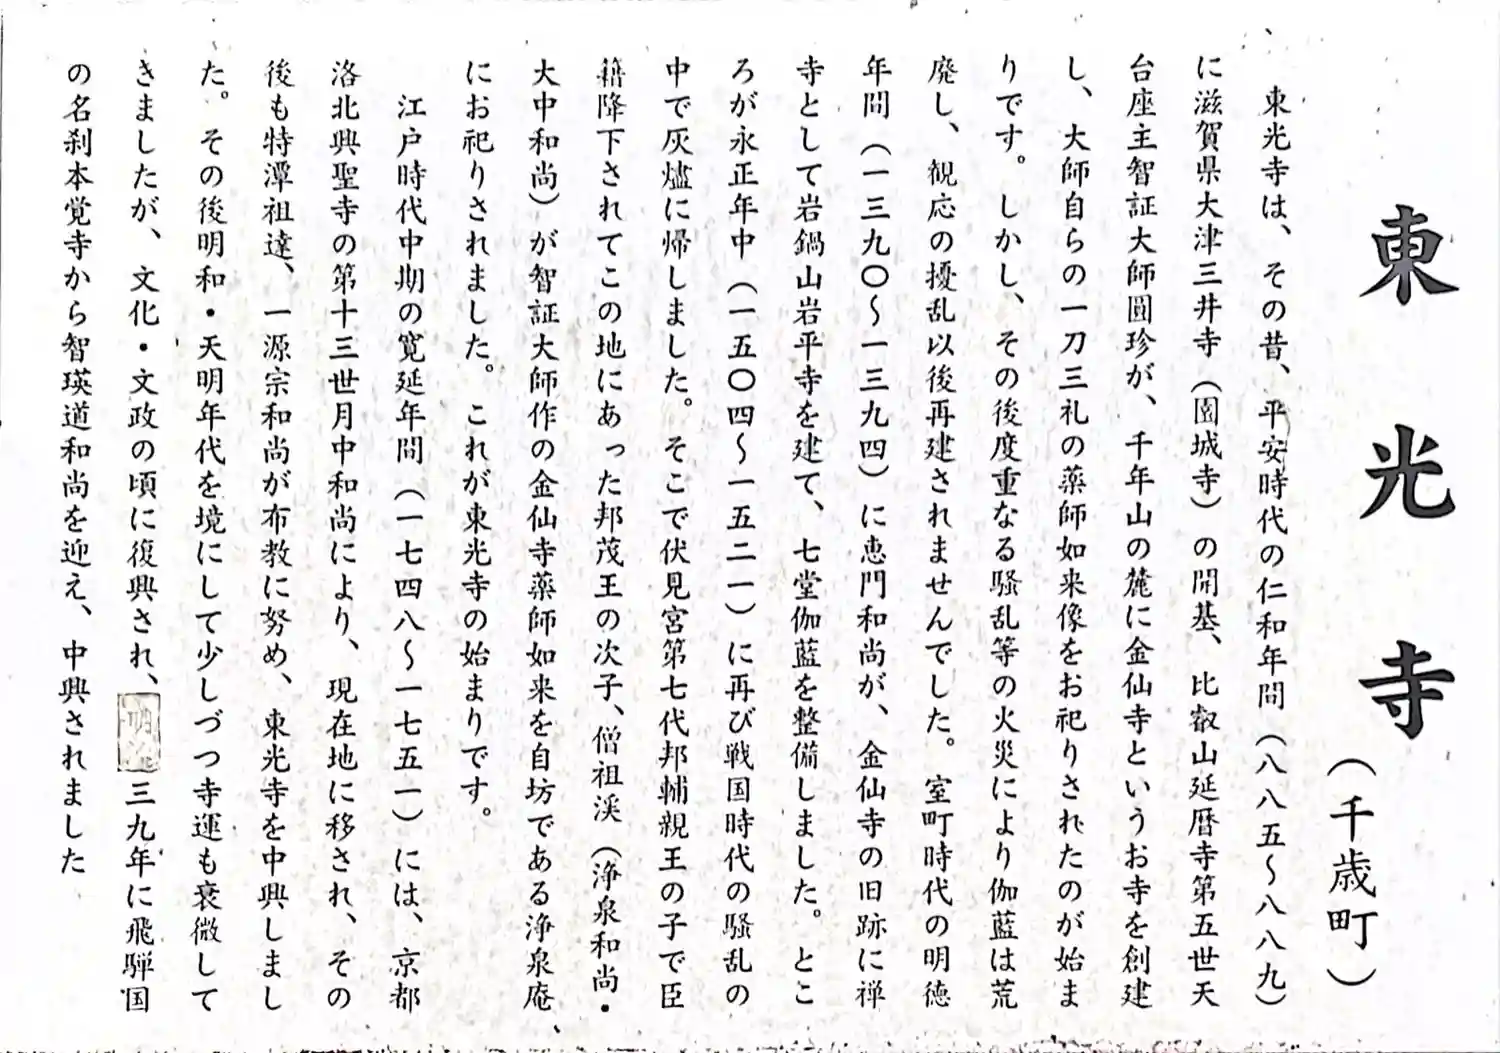 東光寺(千歳町)
東光寺は、その昔、平安時代の仁和年間(八八五〜八八九)
に滋賀県大津三井寺(園城寺)の開基、比叡山延暦寺第五世天
台座主智証大師圓珍が、千年山の麓に金仙寺というお寺を創建
し、大師自らの一刀三礼の薬師如来像をお祀りされたのが始ま
りです。しかし、その後度重なる騒乱等の火災により伽藍は荒
廃し、観応の擾乱以後再建されませんでした。室町時代の明徳
年間(一三九〇〜一三九四)に恵門和尚が、金仙寺の旧跡に禅
寺として岩鍋山岩平寺を建て、七堂伽藍を整備しました。とこ
ろが永正年中(一五〇四〜一五二一)に再び戦国時代の騒乱の
中で灰燼に帰しました。そこで伏見宮第七代邦輔親王の子で臣
籍降下されてこの地にあった邦茂王の次子、僧祖渓(浄泉和尚・
大中和尚)が智証大師作の金仙寺薬師如来を自坊である浄泉庵、
にお祀りされました。これが東光寺の始まりです。
江戸時代中期の寛延年間(一七四八〜一七五一)には、京都
洛北興聖寺の第十三世月中和尚により、現在地に移され、その
後も特潭祖達、一源宗和尚が布教に努め、東光寺を中興しまし
た。その後明和・天明年代を境にして少しづつ寺運も衰微して
きましたが、文化・文政の頃に復興され、明治三九年に飛騨国
の名刹本覚寺から智瑛道和尚を迎え、中興されました